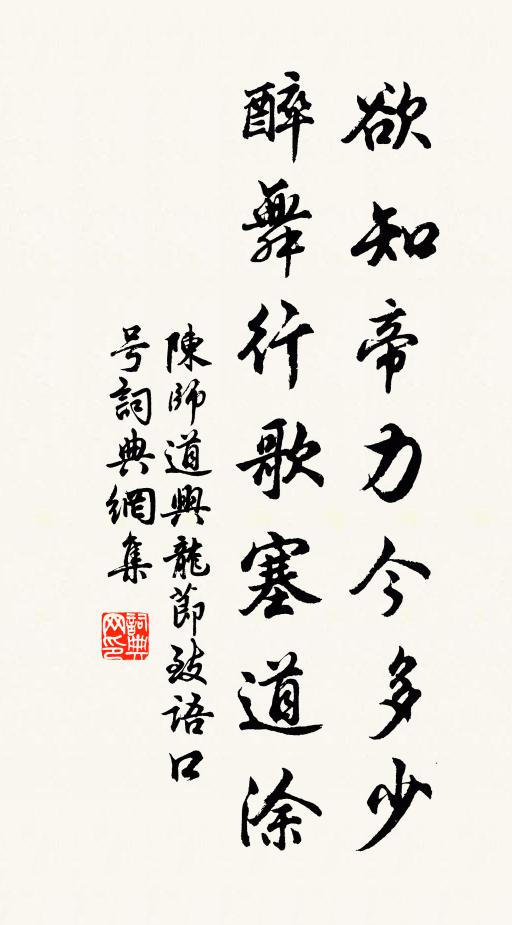 欲知帝力今多少
醉舞行歌塞道涂
陳師道興龍節致語口
号詞典網集
詞典网印